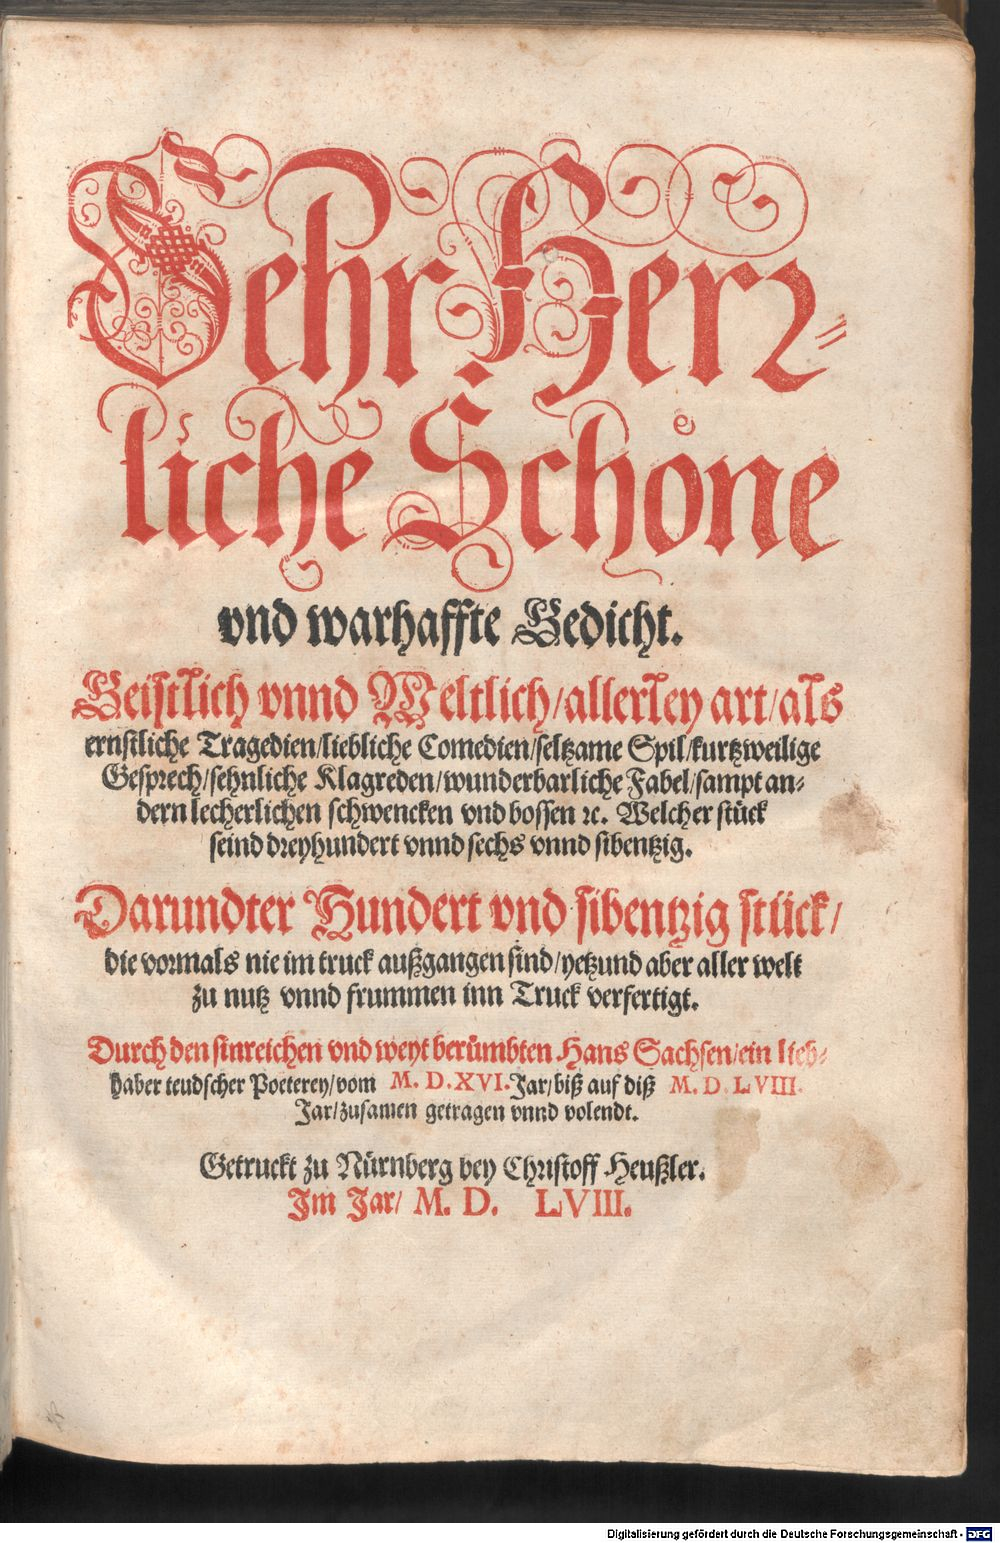 Sehr Herꝛ-
liche Schoͤne
vnd warhaffte Gedicht.
Geistlich vnnd Weltlich/allerley art/als
ernstliche Tragedien/liebliche Comedien/seltzame Spil/kurtzweilige
Gesprech/sehnliche Klagreden/wunderbarliche Fabel/sampt an-
dern lecherlichen schwencken vnd bossen ꝛc. Welcher stück
seind dreyhundert vnnd sechs vnnd sibentzig.
Darundter Hundert vnd sibentzig stück/
die vormals nie im truck außgangen sind/yetzund aber aller welt
zu nutz vnnd frummen inn Truck verfertigt.
Durch den sinreichen vnd weyt berümbten Hans Sachsen/ein lieb-
haber teudscher Poeterey/vom M. D. XVI. Jar/biß auf diß M. D. LVIII.
Jar/zusamen getragen vnnd volendt.
Getruckt zu Nürnberg bey Christoff Heußler.
Im Jar/ M. D. LVIII.
Digitalisierung gefördert durch die Deutsche Forschungsgemeinschaft - DFG